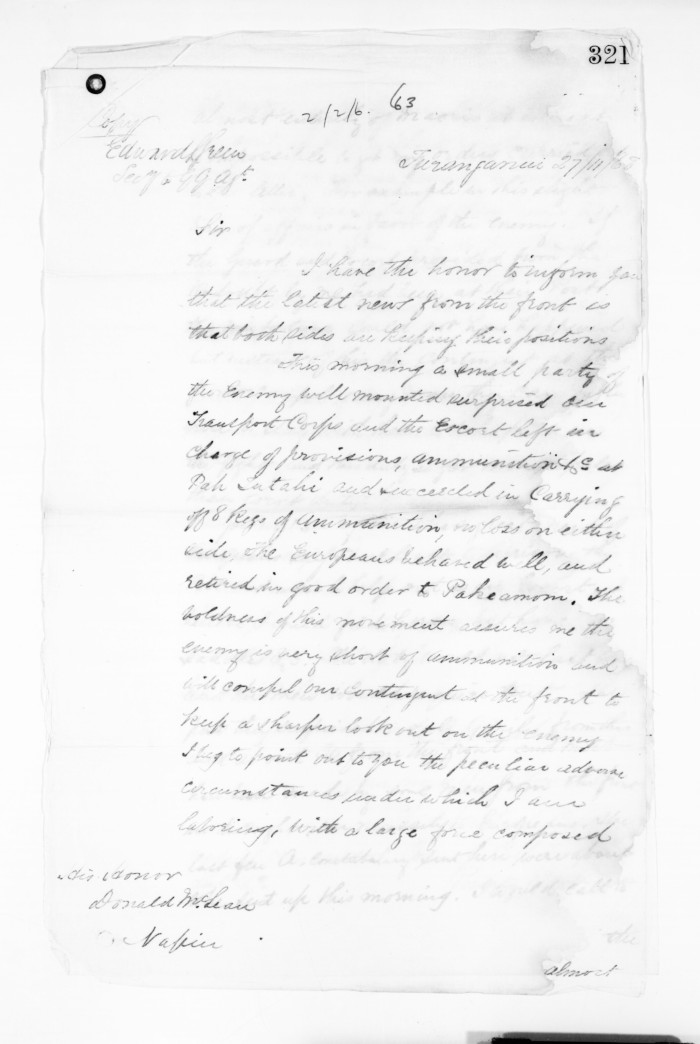 321
2/2/6. 63
Copy
Edward Green
Turanganui 27/11/68
Sir
I have the honor to inform you
that the latest news from the front is
that both sides are keeping their positions
This morning a small party of
the Enemy well mounted surprised our
Transport Corps and the Escort left in
charge of provisions, ammunition &c at
Pah and succeeded in Carrying
off 8 Kegs of ammunition, no loss on either
side, the Europeans behaved well, and
retired in good order to The
boldness of this movement assures me the
enemy is very short of ammunition and
will compel our contingent at the front to
keep a sharper look out on the enemy
I beg to point out to you the peculiar adverse
circumstances under which I am
laboring, with a large force composed
His Honor
Donald McLean
Napier
almost